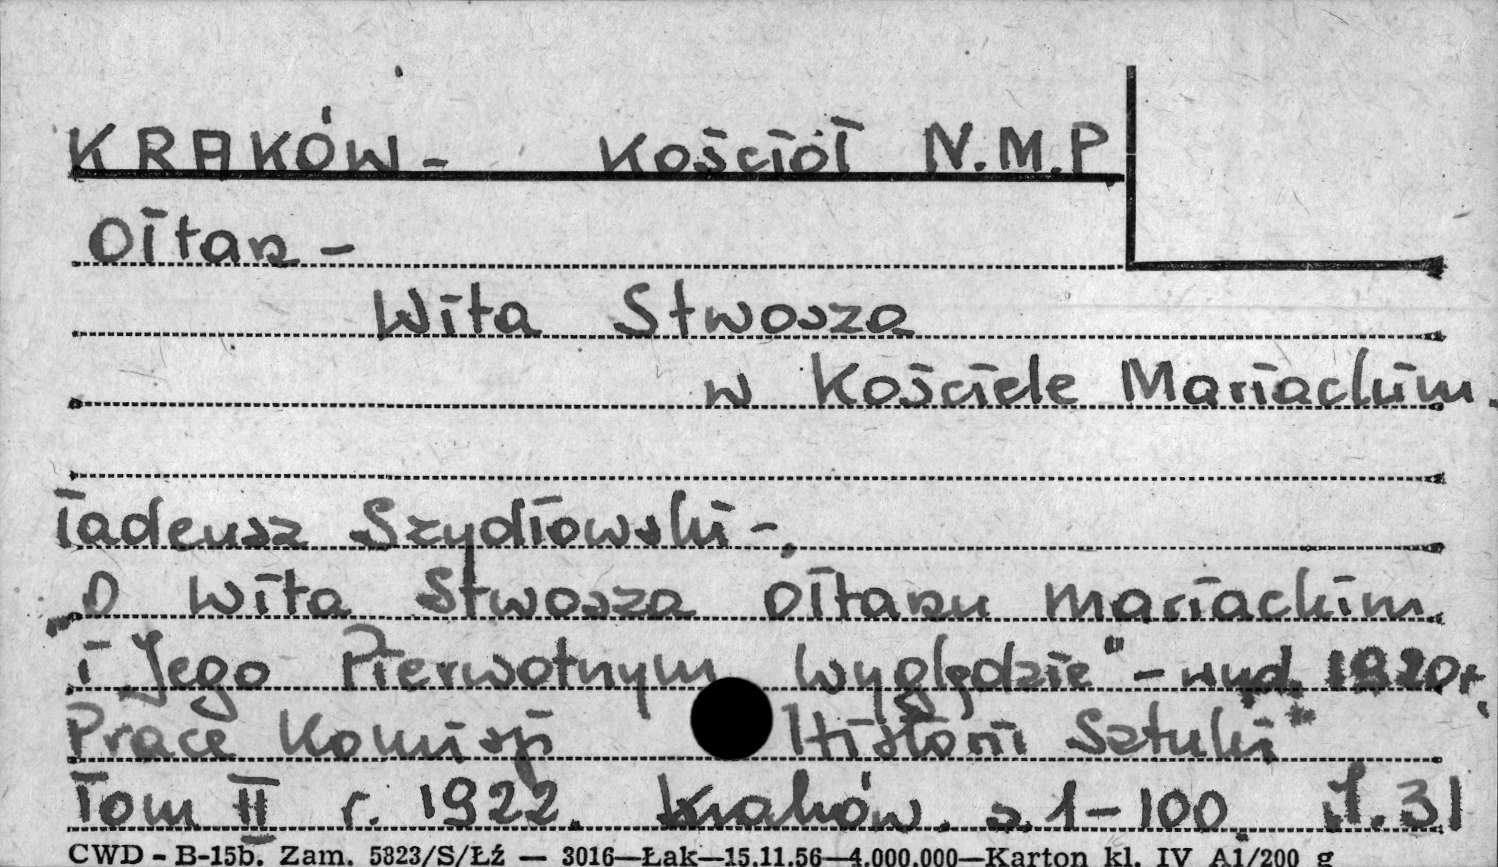 KRAKÓW - Kościół N.M.P
Ołtarz -
Wita Stwosza
w Kościele Mariackim.
Tadeusz Szydłowski -.
"O Wita Stwosza ołtarzu mariackim
i Jego Pierwotnym Wyglądzie" - wyd. 1920 r.
"Prace Komisji Historii Sztuki"
Tom II r. 1922. Kraków. s. 1-100. J. 31
CWD - B-15b. Zam. 5823/S/Łź — 3016—Łak—15.11.56—4.000.000—Karton kl. IV A1/200 g